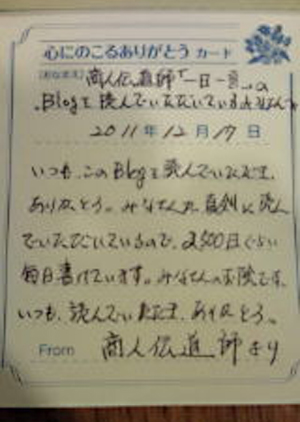 心にのこるありがとう カード
(おなまえ) 商人伝道師「一日一言」の
Blogを読んでいただいているみなさんへ
2011年12月17日
いつも、このBlogを読んでいただき、
ありがとう。みなさんが真剣に読ん
でいただいているので、2500日ぐらい
毎日書けています。みなさんのお陰です。
いつも、読んでいただき、ありがとう。
From 商人伝道師より